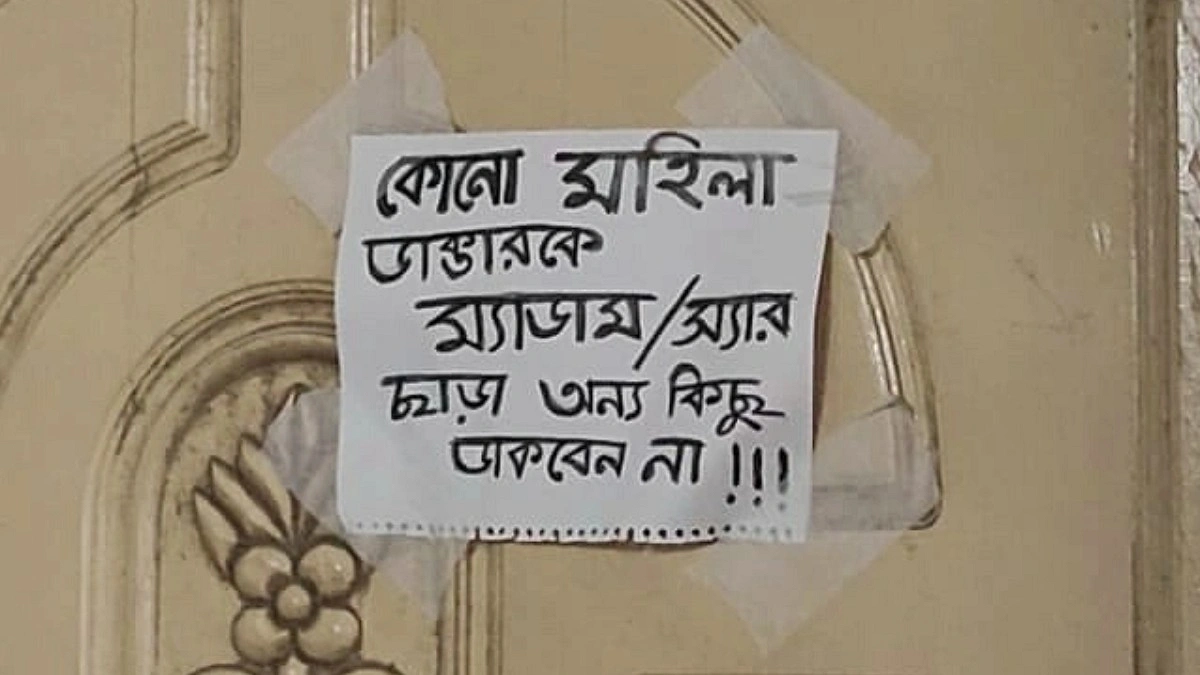 কোনো মহিলা
ডাক্তারকে
ম্যাডাম/স্যার
ছাড়া অন্য কিছু
ডাকবেন না !!!